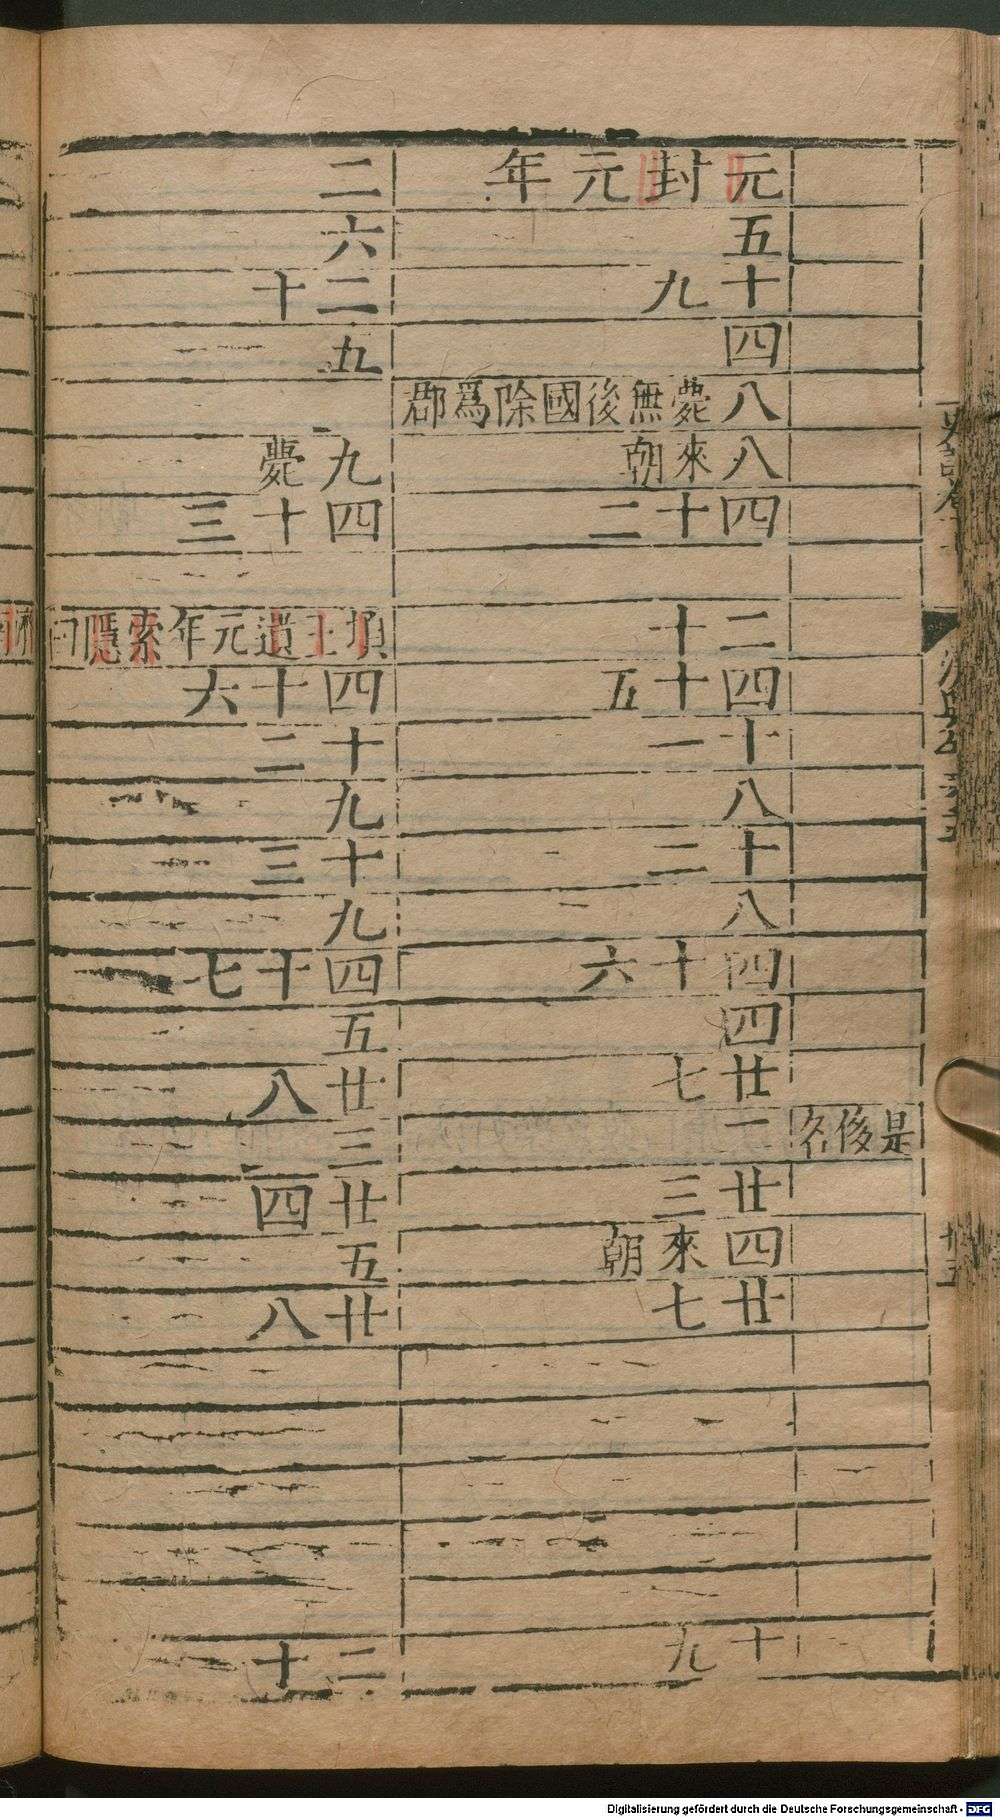 是後名
元封元年
五
十九
四
八薨無後國除爲郡
八來朝
四十二
二十
四十五
十一
十八
十二
八
四十六
四
廿七
二
廿三
四來朝
廿七
十九
二
六
二十
五
九薨
四十三
頃王遺元年索隱曰
四十六
十二
九
十三
九
四十七
五
廿八
三
廿四
五
廿八
二十
Digitalisierung gefördert durch die Deutsche Forschungsgemeinschaft - DFG